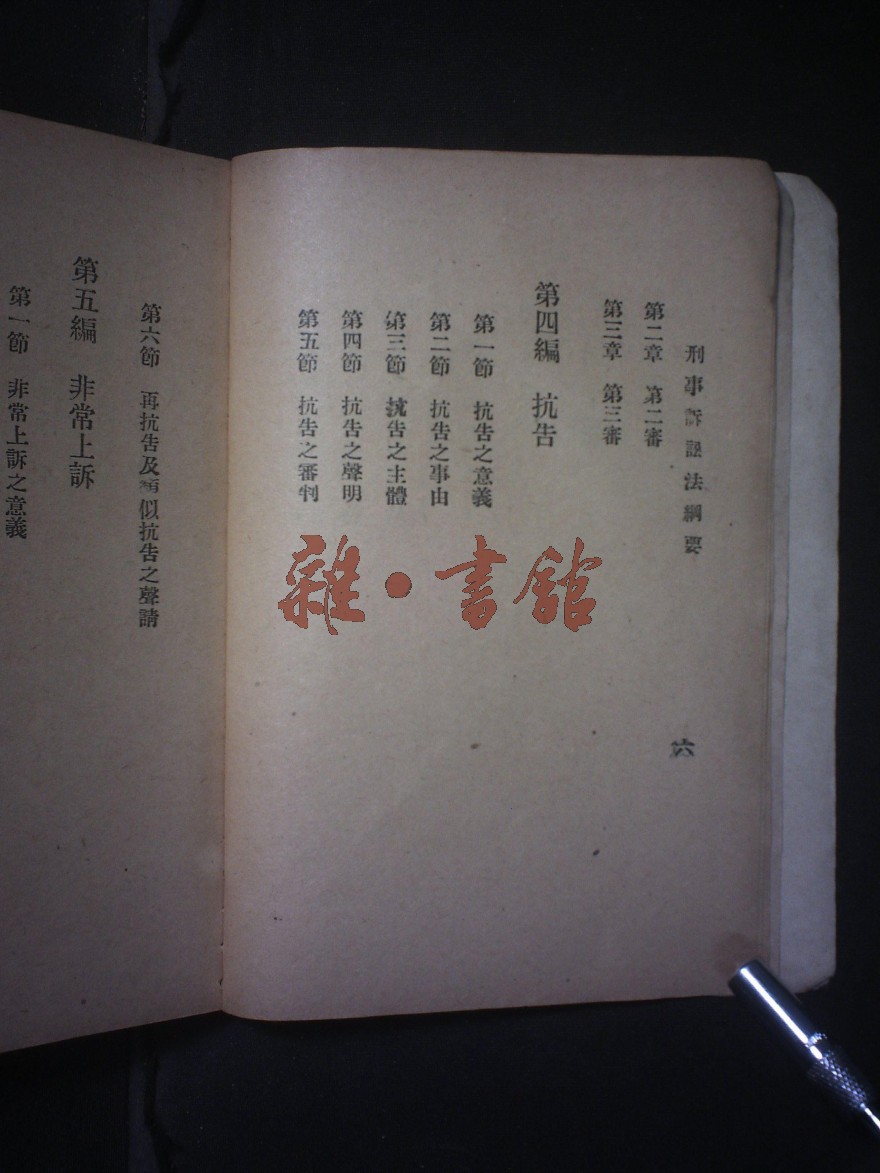 刑事訴訟法綱要
六
第二章　第二審
第三章　第三審
第四編　抗告
第一節　抗告之意義
第二節　抗告之事由
第三節　抗告之主體
第四節　抗告之聲明
第五節　抗告之審判
第六節　再抗告及類似抗告之聲請
第五編　非常上訴
第一節　非常上訴之意義
雜·書館